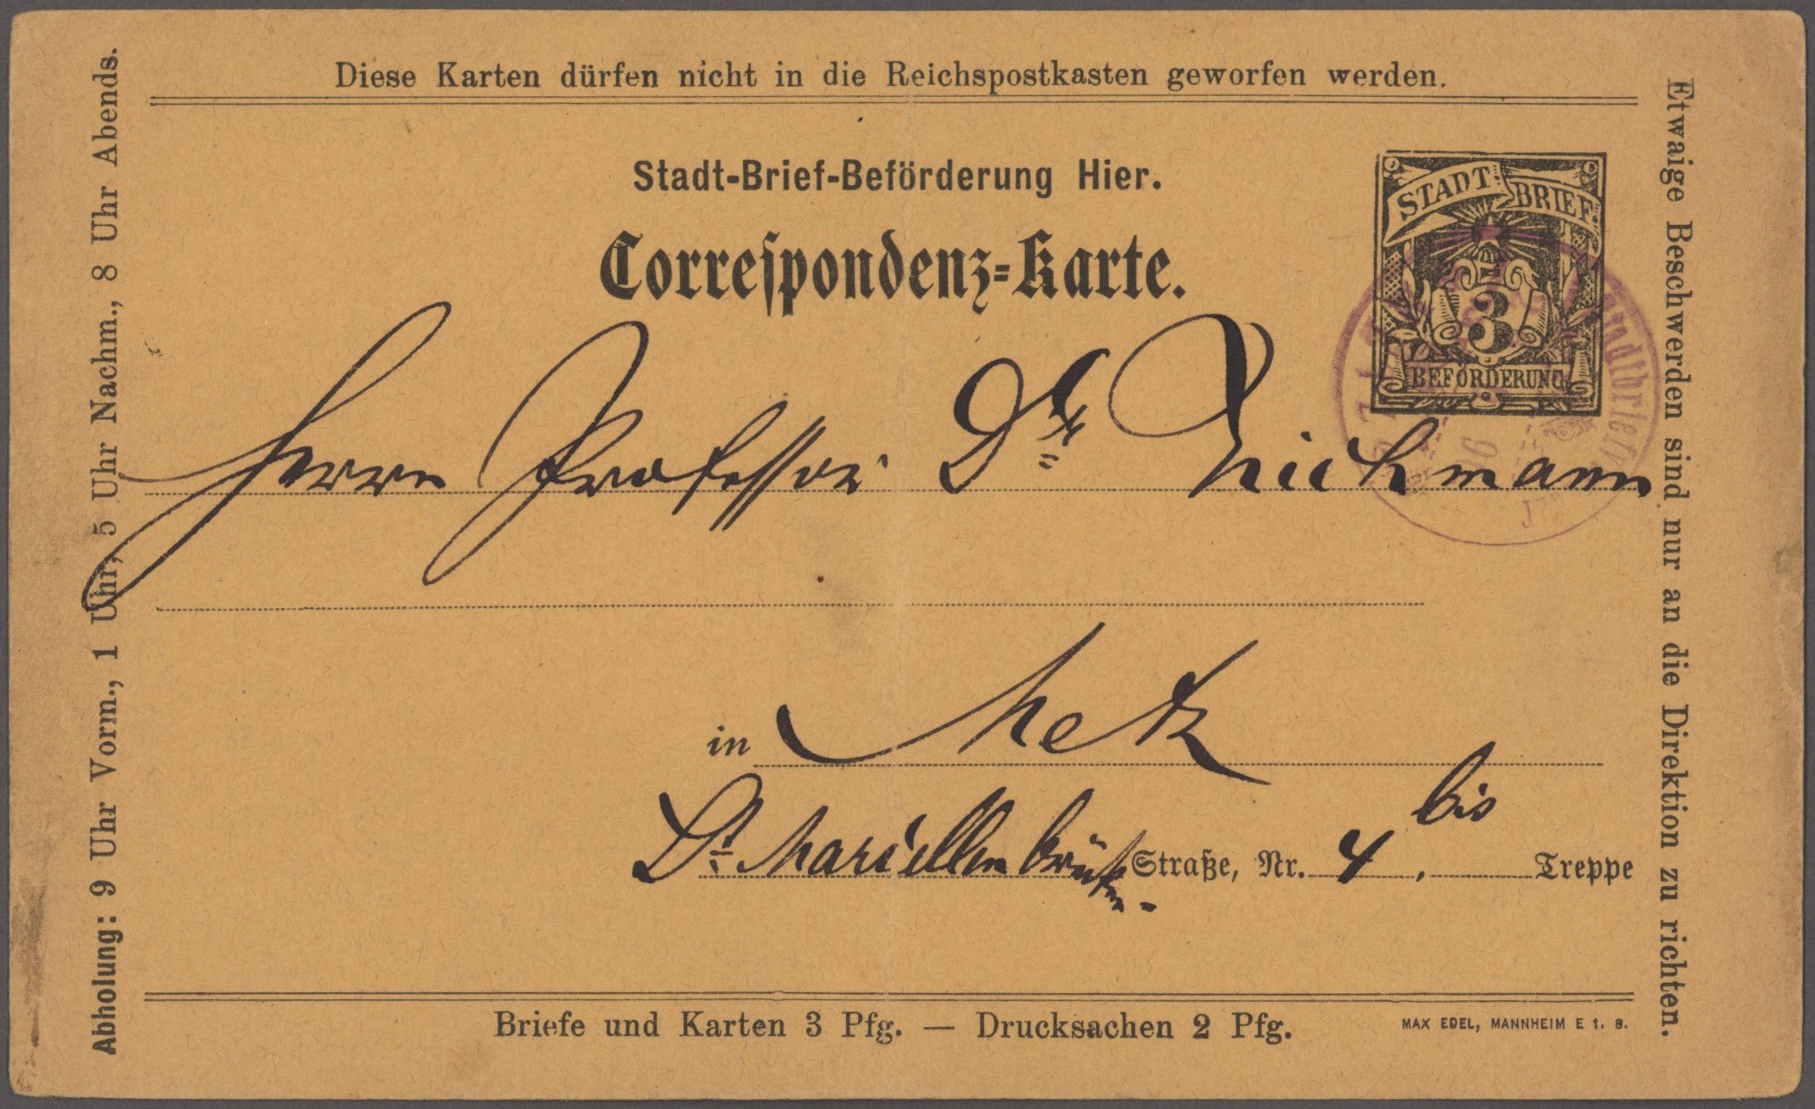 Diese Karten dürfen nicht in die Reichspostkasten geworfen werden.
Stadt-Brief-Beförderung Hier.
Correspondenz-Karte.
STADT-BRIEF-
3
BEFÖRDERUNG
Herrn Professor Dr
in Metz
Straße, Nr. 4 bis, Treppe
Briefe und Karten 3 Pfg. — Drucksachen 2 Pfg.
MAX EDEL, MANNHEIM E 1. 8.
Abholung: 9 Uhr Vorm., 1 Uhr, 5 Uhr Nachm., 8 Uhr Abends.
Etwaige Beschwerden sind nur an die Direktion zu richten.